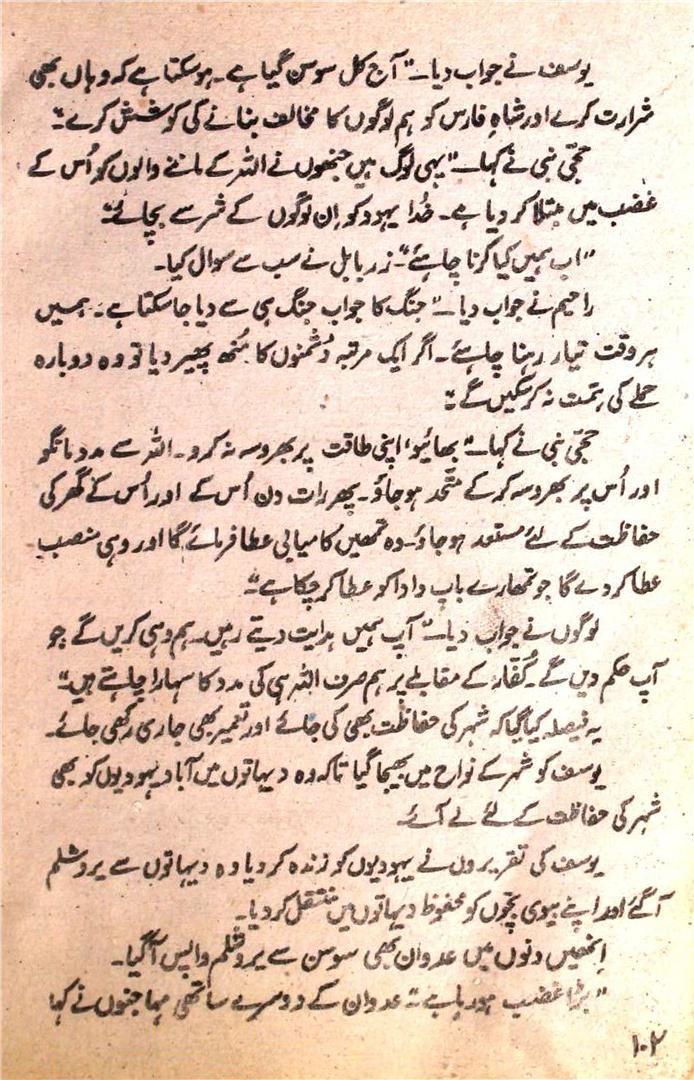 یوسف نے جواب دیا۔" آج کل سوسن گیا ہے۔ ہوسکتا ہے کہ وہاں بھی
شرارت کرے اور شاہِ فارس کو ہم لوگوں کا مخالف بنانے کی کوشش کرے"۔
حجّی نبی نے کہا۔" یہی لوگ ہیں جنھوں نے اللہ کے ماننے والوں کو اُس کے
غضب میں مبتلا کر دیا ہے۔ خدا یہود کو اِن لوگوں کے شر سے بچائے"۔
"اب ہمیں کیا کرنا چاہئے"۔ زربابل نے سب سے سوال کیا۔
راحیم نے جواب دیا۔" جنگ کا جواب جنگ ہی سے دیا جا سکتا ہے۔ ہمیں
ہر وقت تیار رہنا چاہئے۔ اگر ایک مرتبہ دشمنوں کا منھ پھیر دیا تو وہ دوبارہ
حملے کی ہمت نہ کر سکیں گے"۔
حجّی نبی نے کہا۔" بھائیو، اپنی طاقت پر بھروسہ نہ کرو۔ اللہ سے مدد مانگو
اور اُس پر بھروسہ کر کے متحد ہو جاؤ۔ پھر رات دن اُس کے اور اُس کے گھر کی
حفاظت کے لئے مستعد ہو جاؤ۔ وہ تمھیں کامیابی عطا فرمائے گا اور وہی منصب
عطا کر دے گا جو تمھارے باپ دادا کو عطا کر چکا ہے"۔
لوگوں نے جواب دیا۔" آپ ہمیں ہدایت دیتے رہیں۔ ہم وہی کریں گے جو
آپ حکم دیں گے۔ کُفّار کے مقابلے پر ہم صرف اللہ ہی کی مدد کا سہارا چاہتے ہیں"۔
یہ فیصلہ کیا گیا کہ شہر کی حفاظت بھی کی جائے اور تعمیر بھی جاری رکھی جائے۔
یوسف کو شہر کے نواح میں بھیجا گیا تاکہ وہ دیہاتوں میں آباد یہودیوں کو بھی
شہر کی حفاظت کے لئے لے آئے۔
یوسف کی تقریروں نے یہودیوں کو زندہ کر دیا وہ دیہاتوں سے یروشلم
آگئے اور اپنے بیوی بچّوں کو محفوظ دیہاتوں میں منتقل کر دیا۔
اِنھیں دنوں میں عدوان بھی سوسن سے یروشلم واپس آگیا۔
"بڑا غضب ہو رہا ہے"۔ عدوان کے دوسرے ساتھی مہاجنوں نے کہا
۱۰۲